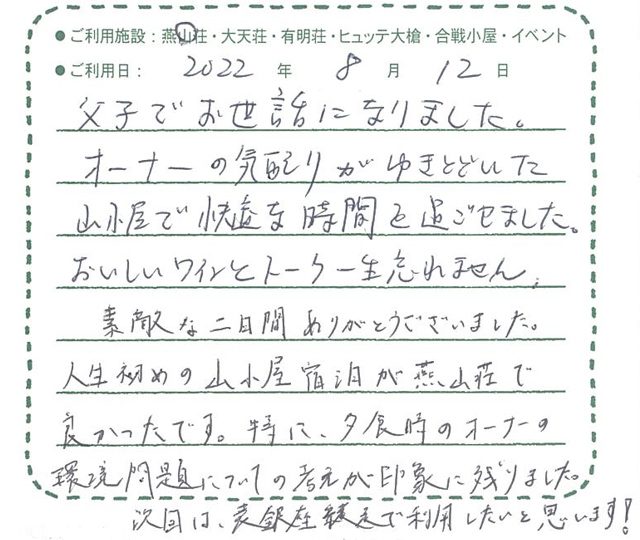 ●ご利用施設：燕山荘・大天荘・有明荘・ヒュッテ大槍・合戦小屋・イベント
●ご利用日： 2022 年 8 月 12 日
父子でお世話になりました。
オーナーの気配りがゆきとどいた
山小屋で快適な時間を過ごせました。
おいしいワインとトーク一生忘れません。
素敵な二日間ありがとうございました。
人生初めの山小屋宿泊が燕山荘で
良かったです。特に、夕食時のオーナーの
環境問題についての考えが印象に残りました。
次回は、表銀座縦走で利用したいと思います!